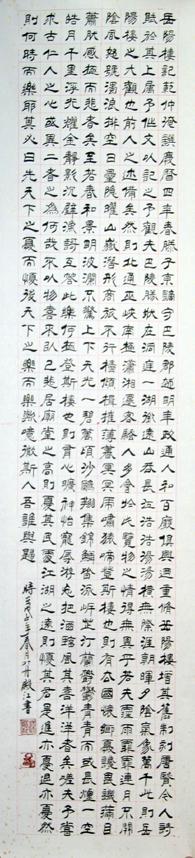 岳陽樓記范仲淹譔慶曆四年春滕子京謫守巴陵郡越明年政通人和百廢俱興迺重修岳陽樓增其舊制刻唐賢今人詩
賦於其上屬予作文以記之予觀夫巴陵勝狀在洞庭一湖銜遠山吞長江浩浩湯湯橫無際涯朝暉夕陰氣象萬千此則岳
陽樓之大觀也前人之述備矣然則北通巫峽南極瀟湘遷客騷人多會於此覽物之情得無異乎若夫霪雨霏霏連月不開
陰風怒號濁浪排空日星隱曜山嶽潛形商旅不行檣傾楫摧薄暮冥冥虎嘯猿啼登斯樓也則有去國懷鄉憂讒畏譏滿目
蕭然感極而悲者矣至若春和景明波瀾不驚上下天光一碧萬頃沙鷗翔集錦鱗游泳岸芷汀蘭鬱鬱青青而或長煙一空
皓月千里浮光耀金靜影沉璧漁謌互答此樂何極登斯樓也則有心曠神怡寵辱偕忘把酒臨風其喜洋洋者矣嗟夫予嘗
求古仁人之心或異二者之為何哉不以物喜不以己悲居廟堂之高則憂其民處江湖之遠則憂其君是進亦憂退亦憂然
則何時而樂耶其必曰先天下之憂而憂後天下之樂而樂歟噫微斯人吾誰與歸